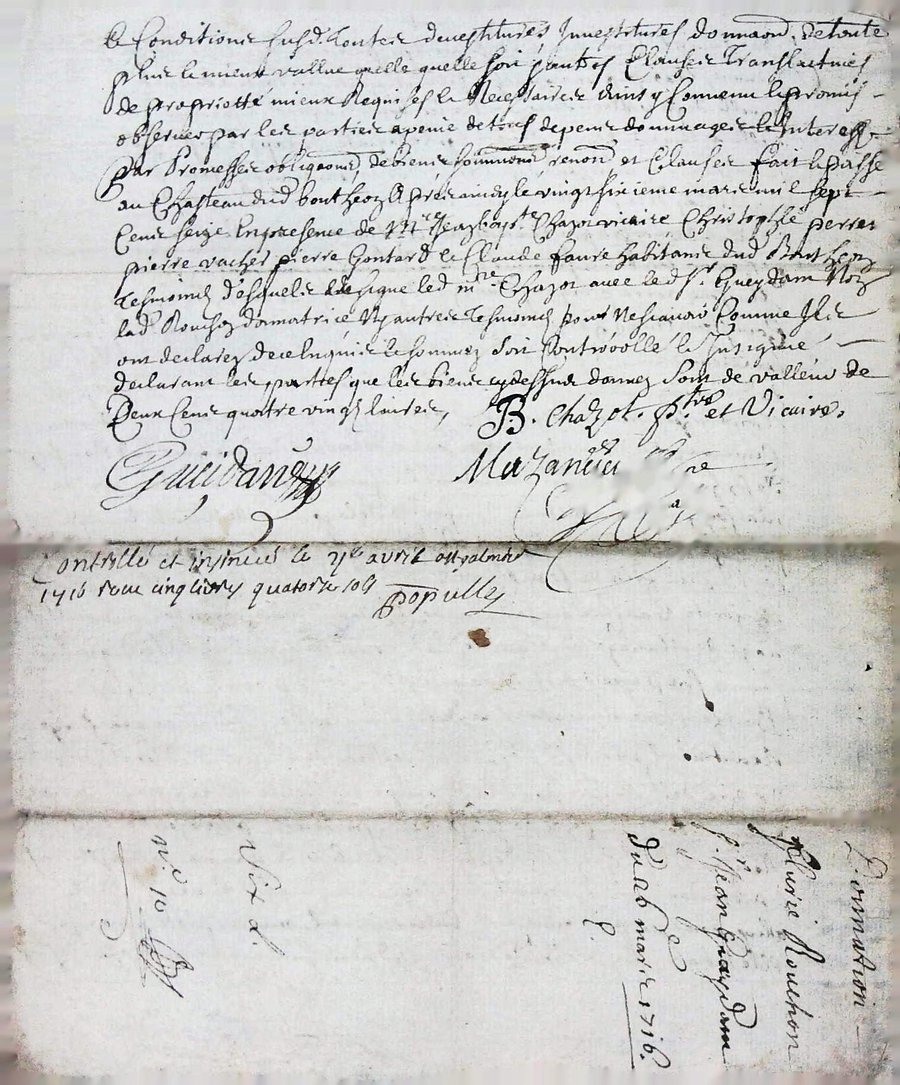 & Conditions susd. toutes devestitures Investitures donnaon. de toute
plus le mieux vallue quelle quelle soit & autres Clauses Translatives
de proprietté mieux Requises & Necessaires ainsy Convenu & promis
observer par les parties a peine de tous depens dommages & Interest
Par Promesses obligeons. de biens soummons. renon. et Clauses fait & passé
au Chasteau dud bontheon apres midy le vingt sixieme mars mil sept
Cens seize En presence de Chazot vicaire Christophle perret
pierre vachet pierre Gontard & Claude faure habitans dud Bontheon
Tesmoins desquels a signé led mre. Chazot avec led Sr. Gueydam Non
lad Rouchon donnatrice Ny autres Tesmoins pour ne scavoir Comme Ils
ont declarez de ce Enquis & sommez Soit Controollé & Insigné
declarant les parties que les biens cydessus donnez sont de valleur de
Deux Cens quatre vingt livres,
B. Chazot. ptre et Vicaire.
Gueidan
Mazanc
Controllé et insinué le avril
1716 receu cinq livres quatorze sols
Populle
Donnation
fleurie Rouchon
Sr. Jean Gueydam
du 26 mars 1716.
Six L.
N.º 10